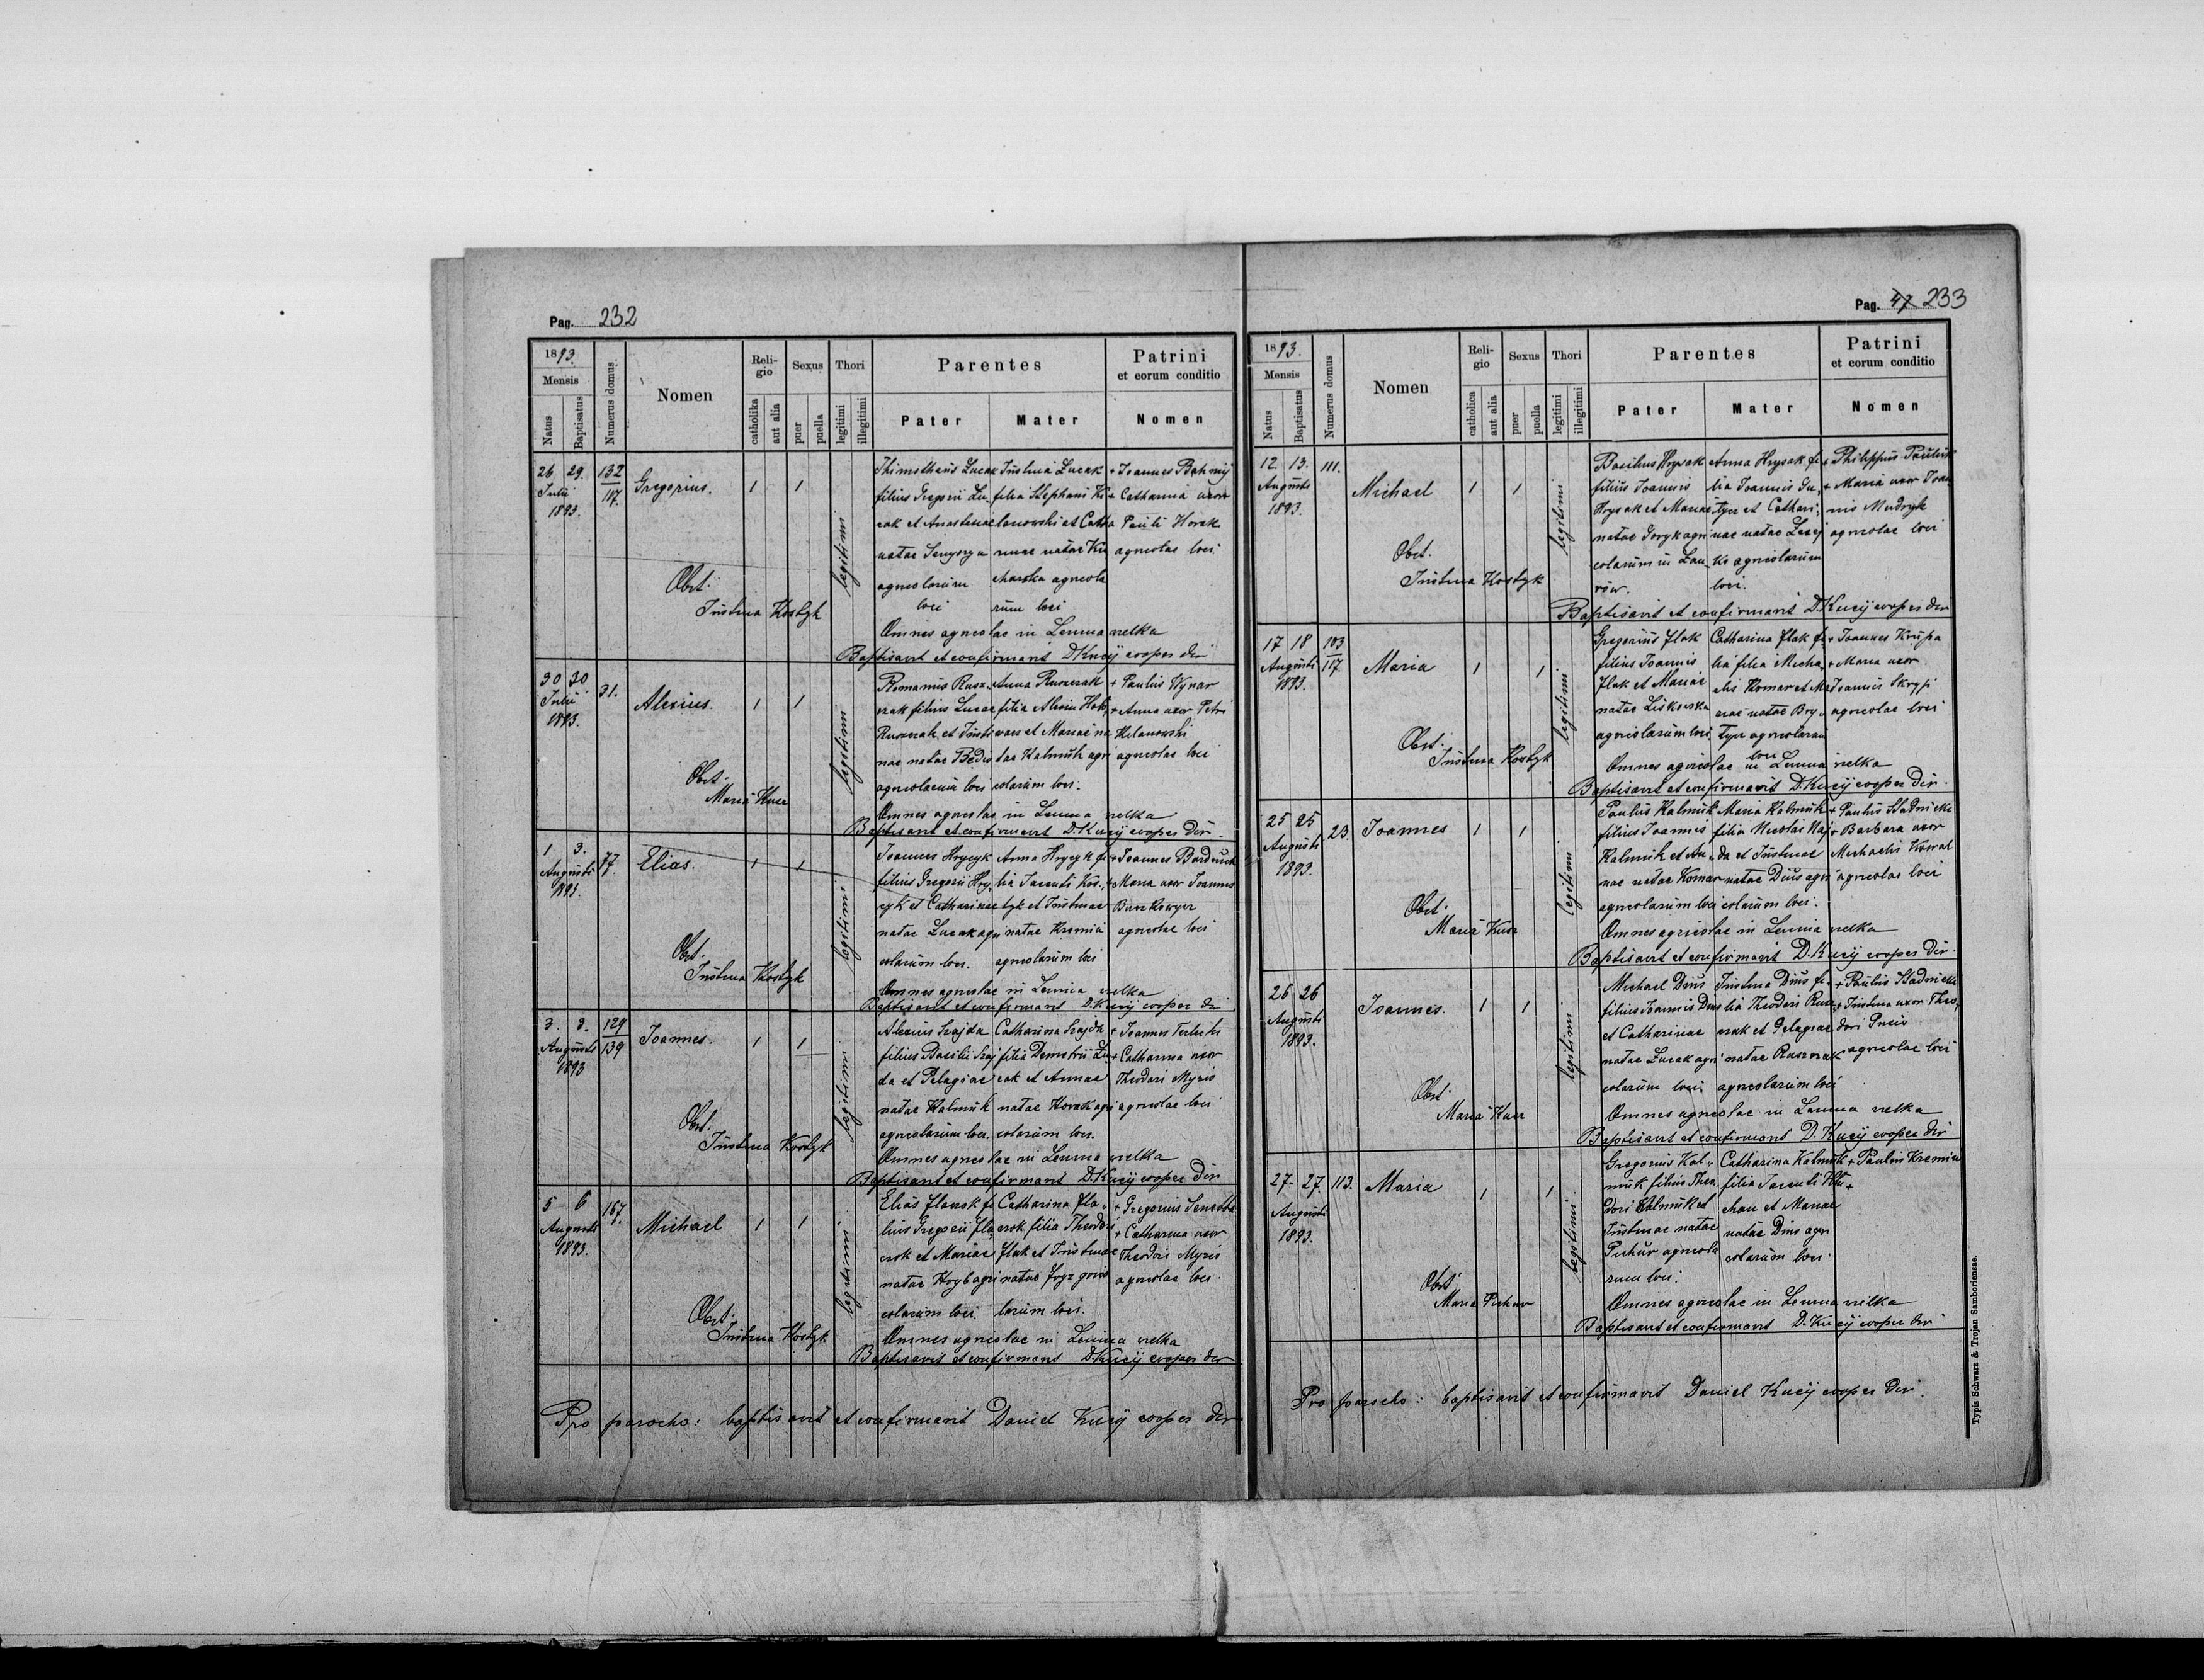 Pag. 232
1893.
Mensis
Natus
Baptisatus
Numerus domus
Nomen
Religio
catholika
aut alia
Sexus
puer
puella
Thori
legitimi
illegitimi
Parentes
Pater
Mater
Patrini
et eorum conditio
Nomen
26 29. 132
Julii 117.
1893.
Gregorius.
1 1
legitimi
Obst:
Justina Kostyk
Thimotheus Lucak
filius Gregorii Lu
cak et Anastasiae
natae
agricolarum
loci
Justina Lucak
filia Stephani Ki
lanowski et Catha
rinae natae Ku
charska agricola
rum loci
+ Joannes
+ Catharina uxor
Pauli Horak
agricolae loci
Omnes agricolae in Lenina welka
Baptisavit et confirmavit D. Kucij cooper dir
30 30
Julii 31.
1893.
Alexius.
1 1
legitimi
Obst:
Maria
Romanus Rusz
czak filius Lucae
Ruszczak et Justi
nae natae
agricolarum loci
Anna Ruszczak
filia Alexii
et Mariae na
tae Kalmuk agri
colarum loci.
+ Paulus Wynar
+ Anna uxor Petri
Kilanowski
agricolae loci
Omnes agricolae in Lenina welka
Baptisavit et confirmavit D. Kucij cooper dir.
1 3. 77.
Augusti
1893.
Elias.
1 1
legitimi
Obst.
Justina Kostyk
Joannes Hrycyk
filius Gregorii Hry
cyk et Catharinae
natae Lucak agri
colarum loci.
Anna Hrycyk fi
lia Jacenti Kos
tyk et Justinae
natae Kremin
agricolarum loci
+ Joannes
+ Maria uxor Joannis
agricolae loci
Omnes agricolae in Lenina welka
Baptisavit et confirmavit D. Kucij cooper dir
3. 3. 129
Augusti 139
1893
Joannes.
1 1
legitimi
Obst.
Justina Kostyk
Alexius Szajda
filius Basilii Szaj
da et Pelagiae
natae Kalmuk
agricolarum loci.
Catharina Szajda
filia Demetrii Lu
cak et Annae
natae Horak agri
colarum loci.
+ Joannes Terlecki
+ Catharina uxor
Theodori Myzio
agricolae loci
Omnes agricolae in Lenina welka
Baptisavit et confirmavit D. Kucij cooper dir
5 6 167.
Augusti
1893.
Michael
1 1
legitimi
Obst.
Justina Kostyk
Elias
lius Gregorii
et Mariae
natae Hryb agri
colarum loci
Catharina
filia Theodori
Flak et Justinae
natae
larum loci.
+ Gregorius
+ Catharina uxor
Theodori Myzio
agricolae loci.
Omnes agricolae in Lenina welka
Baptisavit et confirmavit D. Kucij cooper dir
Pro parocho: baptisavit et confirmavit Daniel Kucij cooper dir
Pag. 47 233
1893.
Mensis
Natus
Baptisatus
Numerus domus
Nomen
Religio
catholica
aut alia
Sexus
puer
puella
Thori
legitimi
illegitimi
Parentes
Pater
Mater
Patrini
et eorum conditio
Nomen
12 13. 111.
Augusti
1893.
Michael
1 1
legitimi
Obst.
Justina Kostyk
Basilius Hrysak
filius Joannis
Hrysak et Mariae
natae agri
colarum in Law
row.
Anna Hrysak fi
lia Joannis
et Cathari
nae natae
ki agricolarum
loci.
+ Philippus
+ Maria uxor Joan
nis Mudryk
agricolae loci
Baptisavit et confirmavit D. Kucij cooper dir
17 18 103
Augusti 117.
1893.
Maria
1 1
legitimi
Obst.
Justina Kostyk
Gregorius Flak
filius Joannis
Flak et Mariae
natae Liskowska
agricolarum loci
Catharina Flak fi
lia filia Micha
elis Komar et Ma
riae natae Bry
agricolarum
loci
+ Joannes Krupa
+ Maria uxor
Joannis
agricolae loci
Omnes agricolae in Lenina welka
Baptisavit et confirmavit D. Kucij cooper dir.
25 25 23.
Augusti
1893.
Joannes
1 1
legitimi
Obst.
Maria
Paulus Kalmuk
filius Joannis
Kalmuk et An
nae natae Komar
agricolarum loci
Maria Kalmuk
filia Nicolai Naj
da et Justinae
natae Dius agri
colarum loci.
+ Paulus Stadnicki
+ Barbara uxor
Michaelis Kowal
agricolae loci
Omnes agricolae in Lenina welka
Baptisavit et confirmavit D. Kucij cooper dir.
26 26
Augusti
1893.
Joannes.
1 1
legitimi
Obst.
Maria
Michael Dius
filius Joannis Dius
et Catharinae
natae Lucak agri
colarum loci
Justina Dius fi
lia Theodori Rusz
czak et Pelagiae
natae Ruszczak
agricolarum loci
+ Paulus Stadnicki
+ Justina uxor Theo
dori
agricolae loci
Omnes agricolae in Lenina welka
Baptisavit et confirmavit D. Kucij cooper dir
27. 27. 113.
Augusti
1893.
Maria
1 1
legitimi
Obst.
Maria Puchur
Gregorius Kal
muk filius Theo
dori Kalmuk et
Justinae natae
Puchur agricola
rum loci.
Catharina Kalmuk
filia Jacenti
et Mariae
natae Dius agri
colarum loci.
+ Paulus Kremin
+
Omnes agricolae in Lenina welka
Baptisavit et confirmavit D. Kucij cooper dir
Pro parocho: baptisavit et confirmavit Daniel Kucij cooper dir.
Typis Schwarz & Trojan Samboriensae.